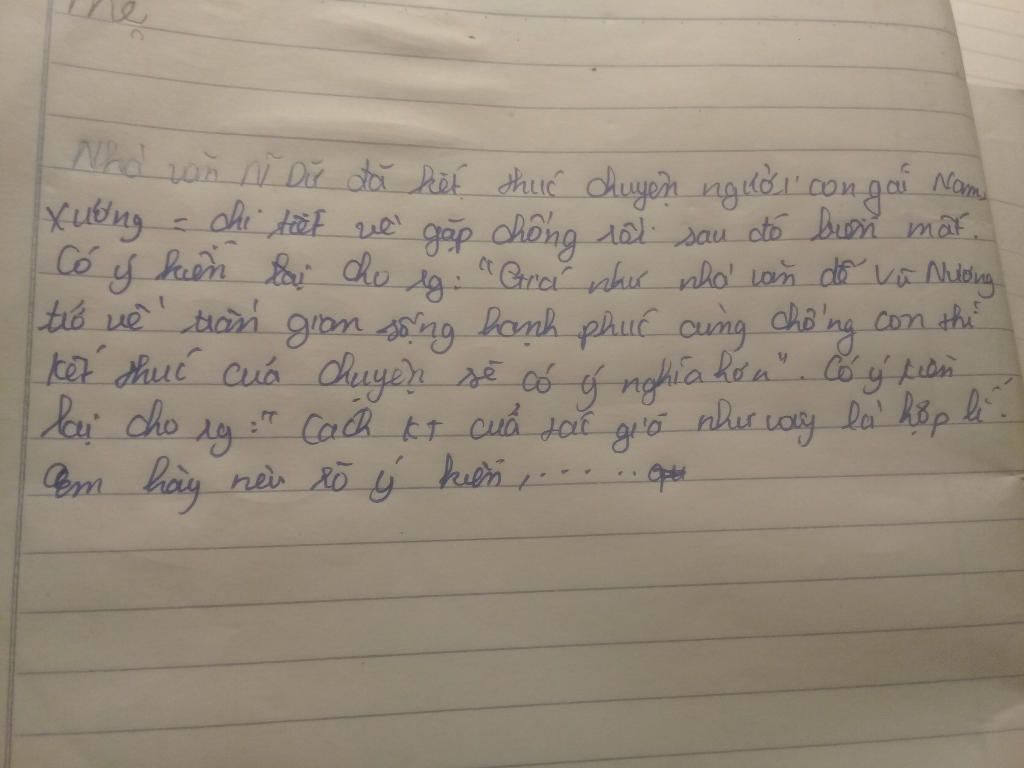 Mẹ
Nhà văn N Dữ đã kết thúc chuyện người con gái Nam
Xương = chi tiết về gặp chồng rồi sau đó biến mất.
Có ý kiến lại cho rg: "Giá như nhà văn để Vũ Nương
trở về trần gian sống hạnh phúc cùng chồng con thì
kết thúc của chuyện sẽ có ý nghĩa hơn". Có ý kiến
lại cho rg: "Cách KT của tác giả như vậy là hợp lí".
Em hãy nêu rõ ý kiến, ......